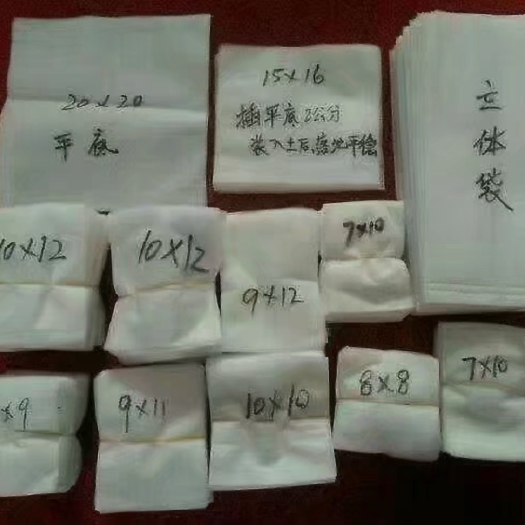 20×20
平底
15×16
插平底2公分
装入土后落地平稳
立体袋
10×12
10×12
9×12
7×10
×9
9×11
10×10
8×8
7×10